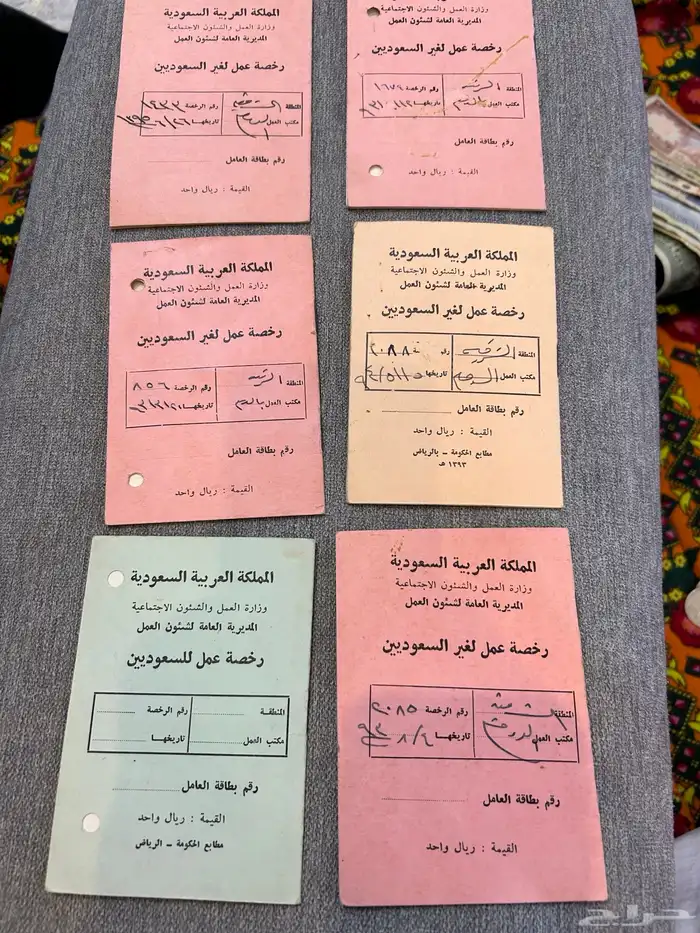 المملكة العربية السعودية
وزارة العمل والشئون الاجتماعية
المديرية العامة لشئون العمل
رخصة عمل لغير السعوديين
المنطقة الشرقية رقم الرخصة ١٩٣٣
مكتب العمل الدمام تاريخها
رقم بطاقة العامل
القيمة : ريال واحد
المملكة العربية السعودية
وزارة العمل والشئون الاجتماعية
المديرية العامة لشئون العمل
رخصة عمل لغير السعوديين
المنطقة رقم الرخصة ١٦٧٩
مكتب العمل تاريخها
رقم بطاقة العامل
القيمة : ريال واحد
المملكة العربية السعودية
وزارة العمل والشئون الاجتماعية
المديرية العامة لشئون العمل
رخصة عمل لغير السعوديين
المنطقة رقم الرخصة ٨٥٦
مكتب العمل تاريخها
رقم بطاقة العامل
القيمة : ريال واحد
المملكة العربية السعودية
وزارة العمل والشئون الاجتماعية
المديرية العامة لشئون العمل
رخصة عمل لغير السعوديين
المنطقة الشرقية رقم ٢٠٨٨
مكتب العمل تاريخها
رقم بطاقة العامل
القيمة : ريال واحد
مطابع الحكومة – بالرياض
١٣٩٣ هـ
المملكة العربية السعودية
وزارة العمل والشئون الاجتماعية
المديرية العامة لشئون العمل
رخصة عمل للسعوديين
المنطقة رقم الرخصة
مكتب العمل تاريخها
رقم بطاقة العامل
القيمة : ريال واحد
مطابع الحكومة – الرياض
المملكة العربية السعودية
وزارة العمل والشئون الاجتماعية
المديرية العامة لشئون العمل
رخصة عمل لغير السعوديين
المنطقة رقم الرخصة ٢٠٨٥
مكتب العمل تاريخها ٩٣/٨/٤
رقم بطاقة العامل
القيمة : ريال واحد
حراج